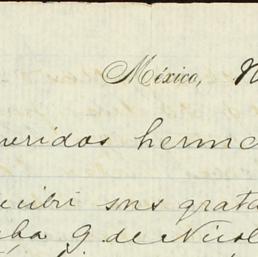 México, N
ueridos herma
ecibi sus grata
cha 9 de Nicol